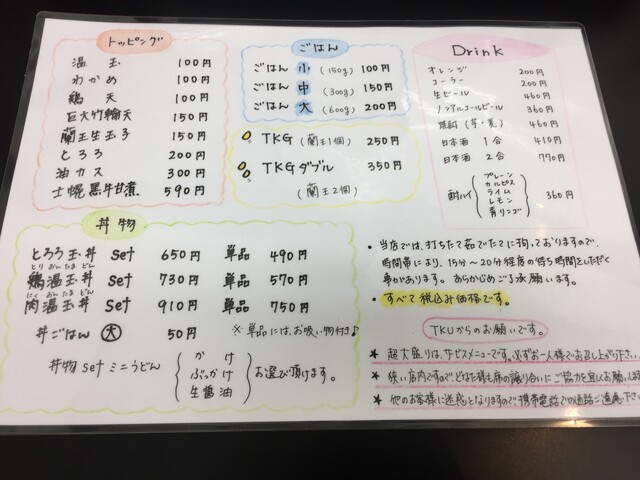 トッピング
温玉 100円
わかめ 100円
鶏天 100円
巨大竹輪天 150円
蘭王生玉子 150円
とろろ 200円
油カス 300円
士幌黒牛甘煮 590円
ごはん
ごはん 小 (150g) 100円
ごはん 中 (300g) 150円
ごはん 大 (600g) 200円
TKG (蘭王1個) 250円
TKGダブル 350円
(蘭王2個)
Drink
オレンジ 200円
コーラー 200円
生ビール 460円
ノンアルコールビール 360円
焼酎 (芋・麦) 360円
日本酒 1合 410円
日本酒 2合 770円
酎ハイ 360円
プレーン
カルピス
ライム
レモン
青リンゴ
丼物
とろろ玉丼 set 650円 単品 490円
とりおんたまどん
鶏温玉丼 set 730円 単品 570円
にくおんたまどん
肉温玉丼 set 910円 単品 750円
丼ごはん 大 50円
※単品には、お吸い物付き♪
丼物set ミニうどん
かけ
ぶっかけ
生醤油
お選び頂けます。
・当店では、打ちたて茹でたてに拘っておりますので、
時間帯により、15分〜20分程度の待ち時間をいただく
事があります。あらかじめご了承願います。
・すべて税込み価格です。
TKUからのお願いです。
★超大盛りは、サービスメニューです。必ずお一人様でお召し上がり下さい
★狭い店内ですので、どなた様も席の譲り合いにご協力を宜しくお願い
★他のお客様に迷惑となりますので携帯電話での通話ご遠慮下さい